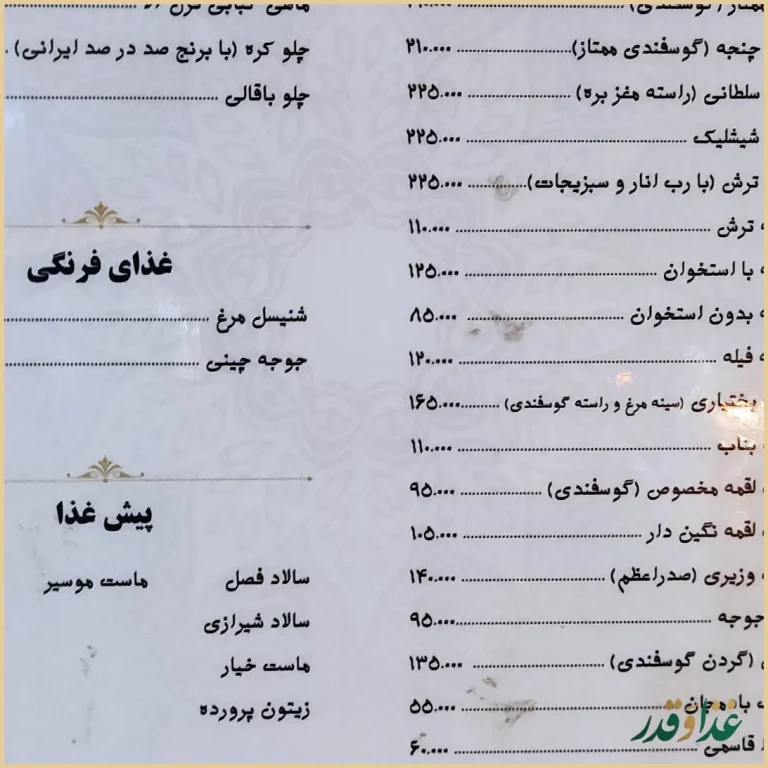 چنجه (گوسفندی ممتاز) ۲۱۰.۰۰۰
سلطانی (راسته مغز بره) ۲۲۵.۰۰۰
شیشلیک ۲۲۵.۰۰۰
ترش (با رب انار و سبزیجات) ۲۲۵.۰۰۰
ترش ۱۱۰.۰۰۰
با استخوان ۱۲۵.۰۰۰
بدون استخوان ۸۵.۰۰۰
فیله ۱۲۰.۰۰۰
بختیاری (سینه مرغ و راسته گوسفندی) ۱۶۵.۰۰۰
بناب ۱۱۰.۰۰۰
لقمه مخصوص (گوسفندی) ۹۵.۰۰۰
لقمه نگین دار ۱۰۵.۰۰۰
وزیری (صدراعظم) ۱۴۰.۰۰۰
جوجه ۹۵.۰۰۰
(گردن گوسفندی) ۱۳۵.۰۰۰
بادمجان ۵۵.۰۰۰
قاسمی ۶۰.۰۰۰
چلو کره (با برنج صد در صد ایرانی)
چلو باقالی
غذای فرنگی
شنیسل مرغ
جوجه چینی
پیش غذا
سالاد فصل ماست موسیر
سالاد شیرازی
ماست خیار
زیتون پرورده
غذا و قدر